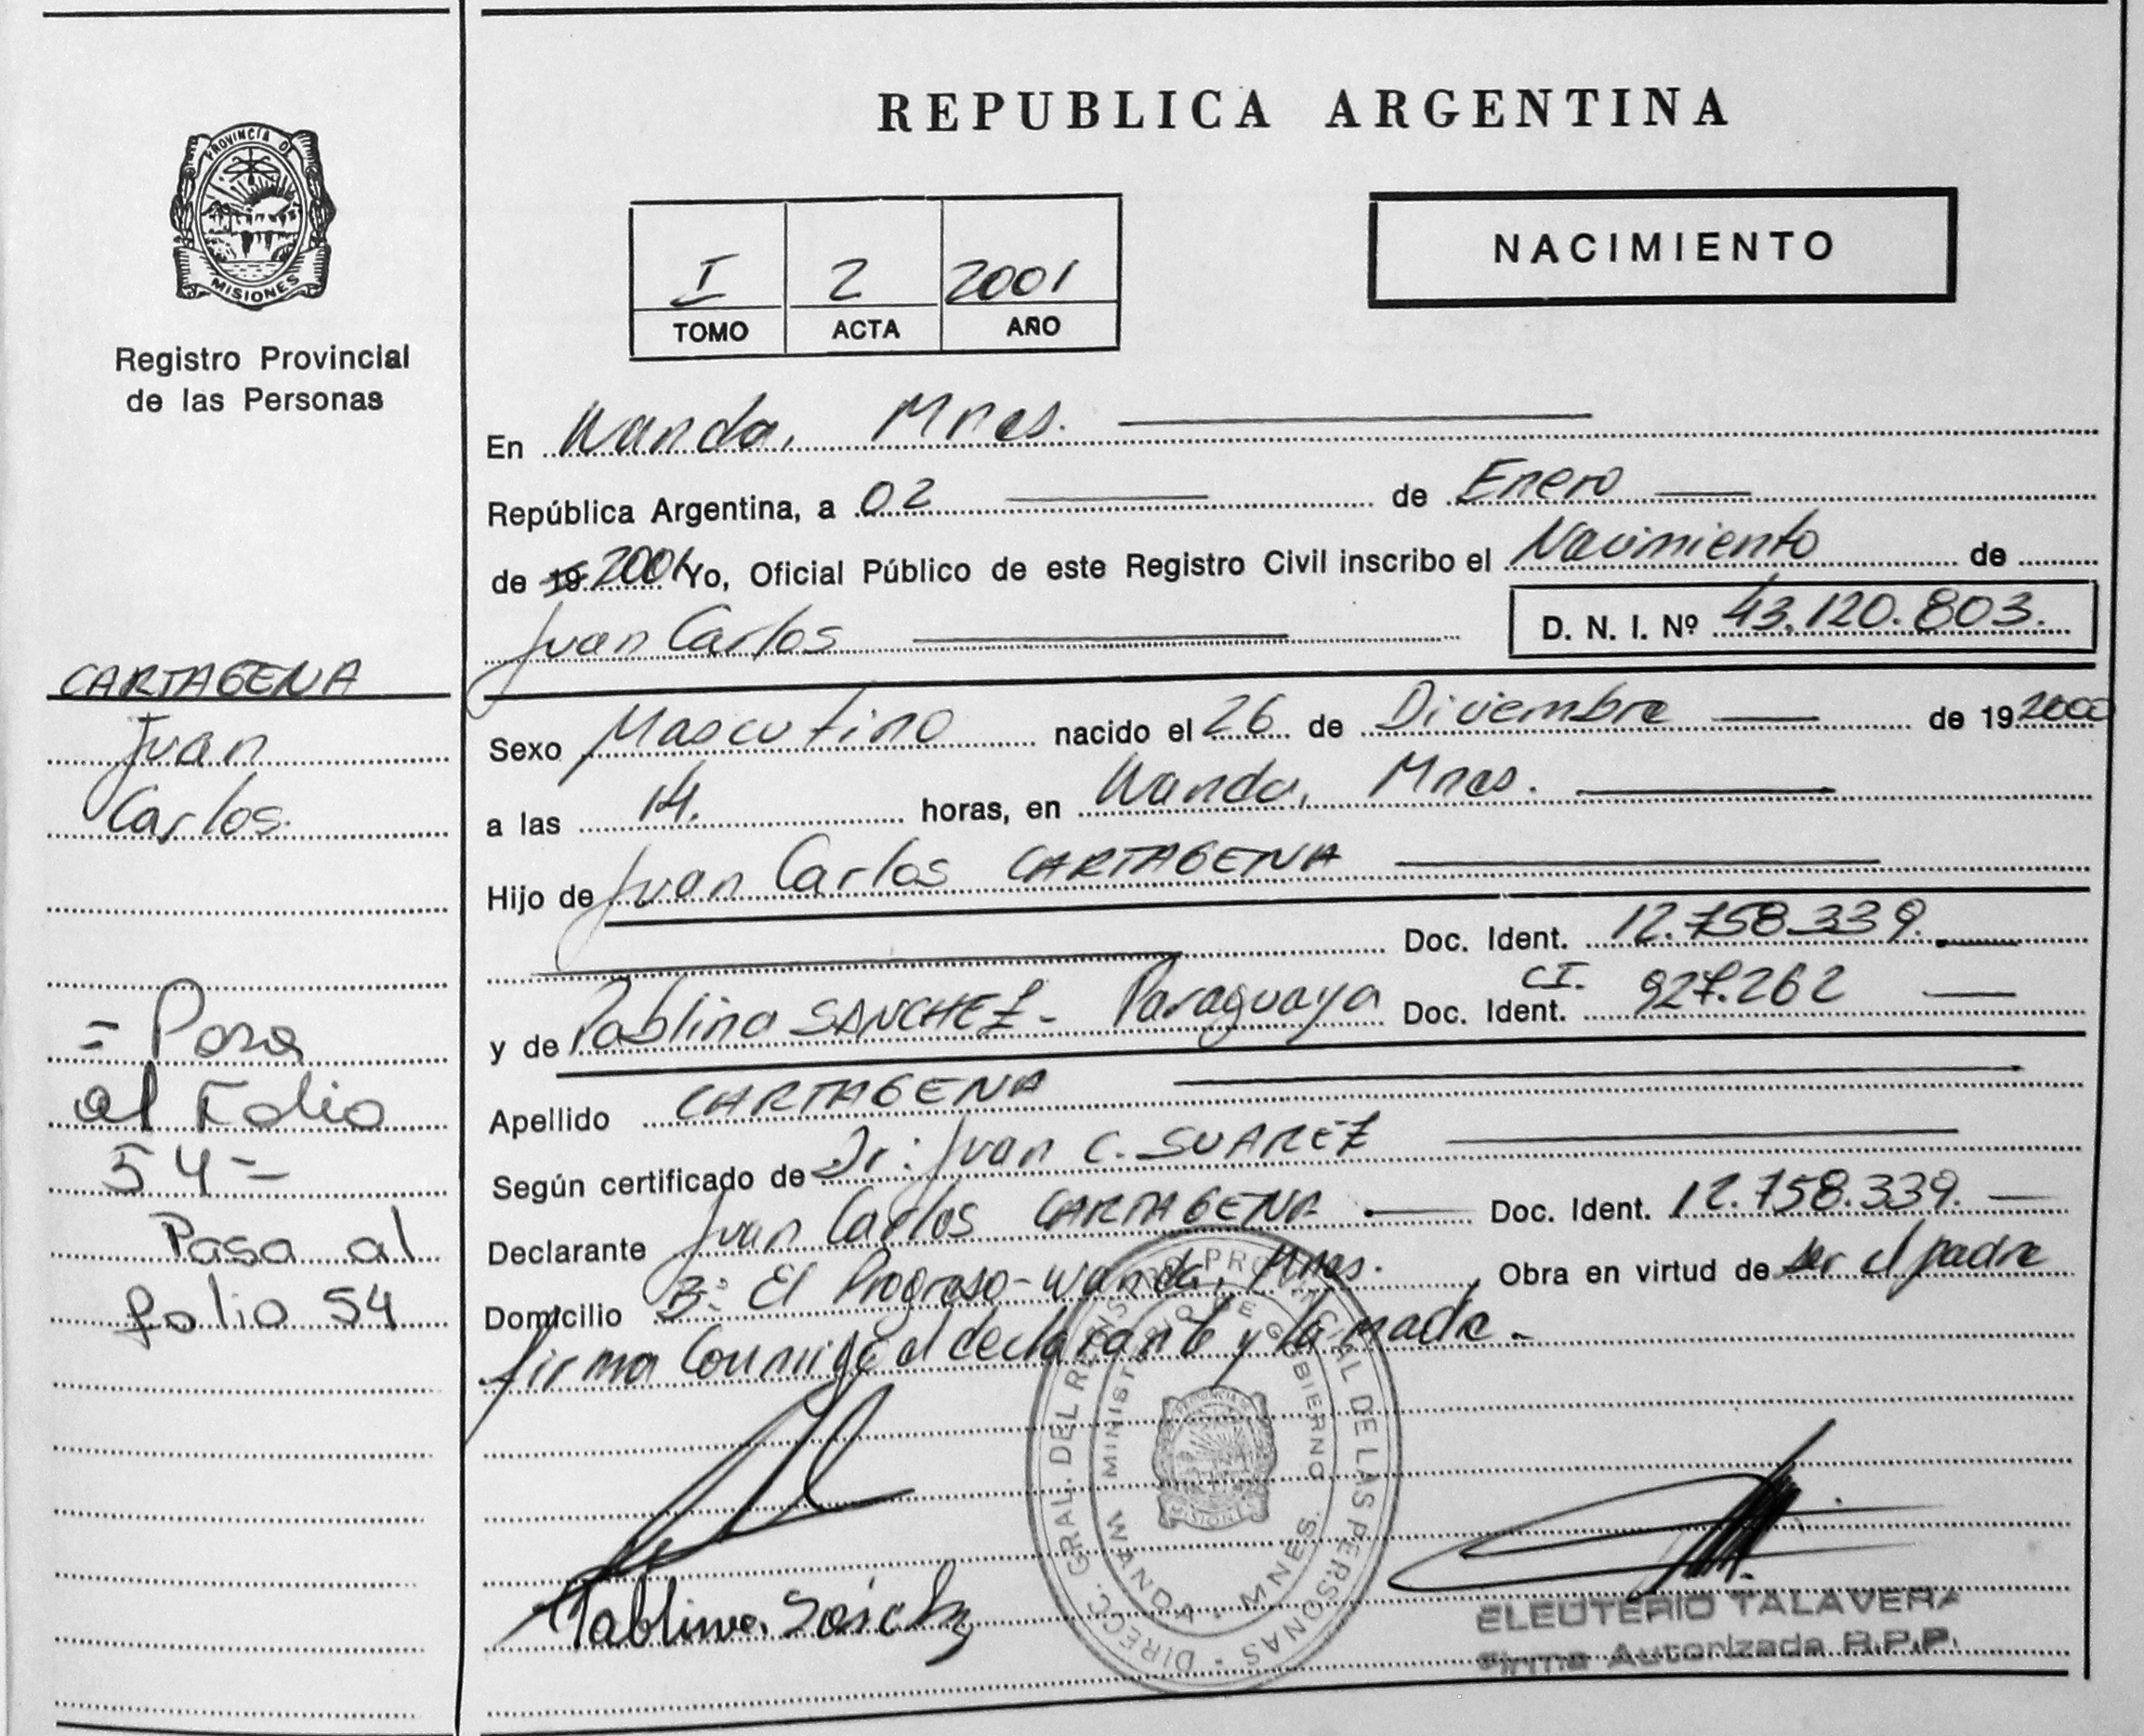 PROVINCIA DE
MISIONES
Registro Provincial
de las Personas
CARTAGENA
Juan
Carlos.
= Pasa
al Folio
54 =
Pasa al
folio 54
REPUBLICA ARGENTINA
I 2 2001
TOMO ACTA AÑO
NACIMIENTO
En Wanda, Mnes.
República Argentina, a 02 de Enero
de 19 2001 Yo, Oficial Público de este Registro Civil inscribo el Nacimiento de
Juan Carlos D. N. I. Nº 43.120.803.
Sexo Masculino nacido el 26 de Diciembre de 19 2000
a las 14. horas, en Wanda, Mnes.
Hijo de Juan Carlos CARTAGENA
Doc. Ident. 12.758.339.
y
CI.
y de Pablina SANCHEZ - Paraguaya Doc. Ident. 927.262
Apellido CARTAGENA
Según certificado de Dr: Juan C. SUAREZ
Declarante Juan Carlos CARTAGENA Doc. Ident. 12.758.339.
Domicilio B: El Progreso - Wanda, Mnes. Obra en virtud de ser el padre
firma conmigo el declarante y la madre.
DIRECC. GRAL. DEL REGISTRO PROVINCIAL DE LAS PERSONAS
MINISTERIO DE GOBIERNO
WANDA - MNES.
Pablina
ELEUTERIO TALAVERA
Firma Autorizada R.P.P.